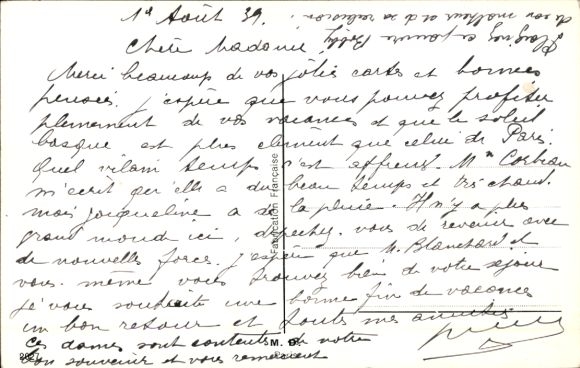 1er Août 39.
Chère Madame
Merci beaucoup de vos jolies cartes et bonnes
pensées. j'espère que vous pouvez profiter
pleinement de vos vacances et que le soleil
basque est plus clément que celui de Paris.
Quel vilain temps c'est affreux. Mme Corbiau
m'écrit qu'elle a du beau temps et très chaud.
mais Jacqueline a de la pluie. Il n'y a plus
grand monde ici, dépechez vous de revenir avec
de nouvelles forces. j'espère que M. Blanchard et
vous-même vous trouvez bien de votre séjour
je vous souhaite une bonne fin de vacances
un bon retour et toutes mes amitiés
Ces dames sont contentes de votre
bon souvenir et vous remercient
Plaignez ce pauvre Boby
de son malheur et de sa
Fabrication Française
M. D.